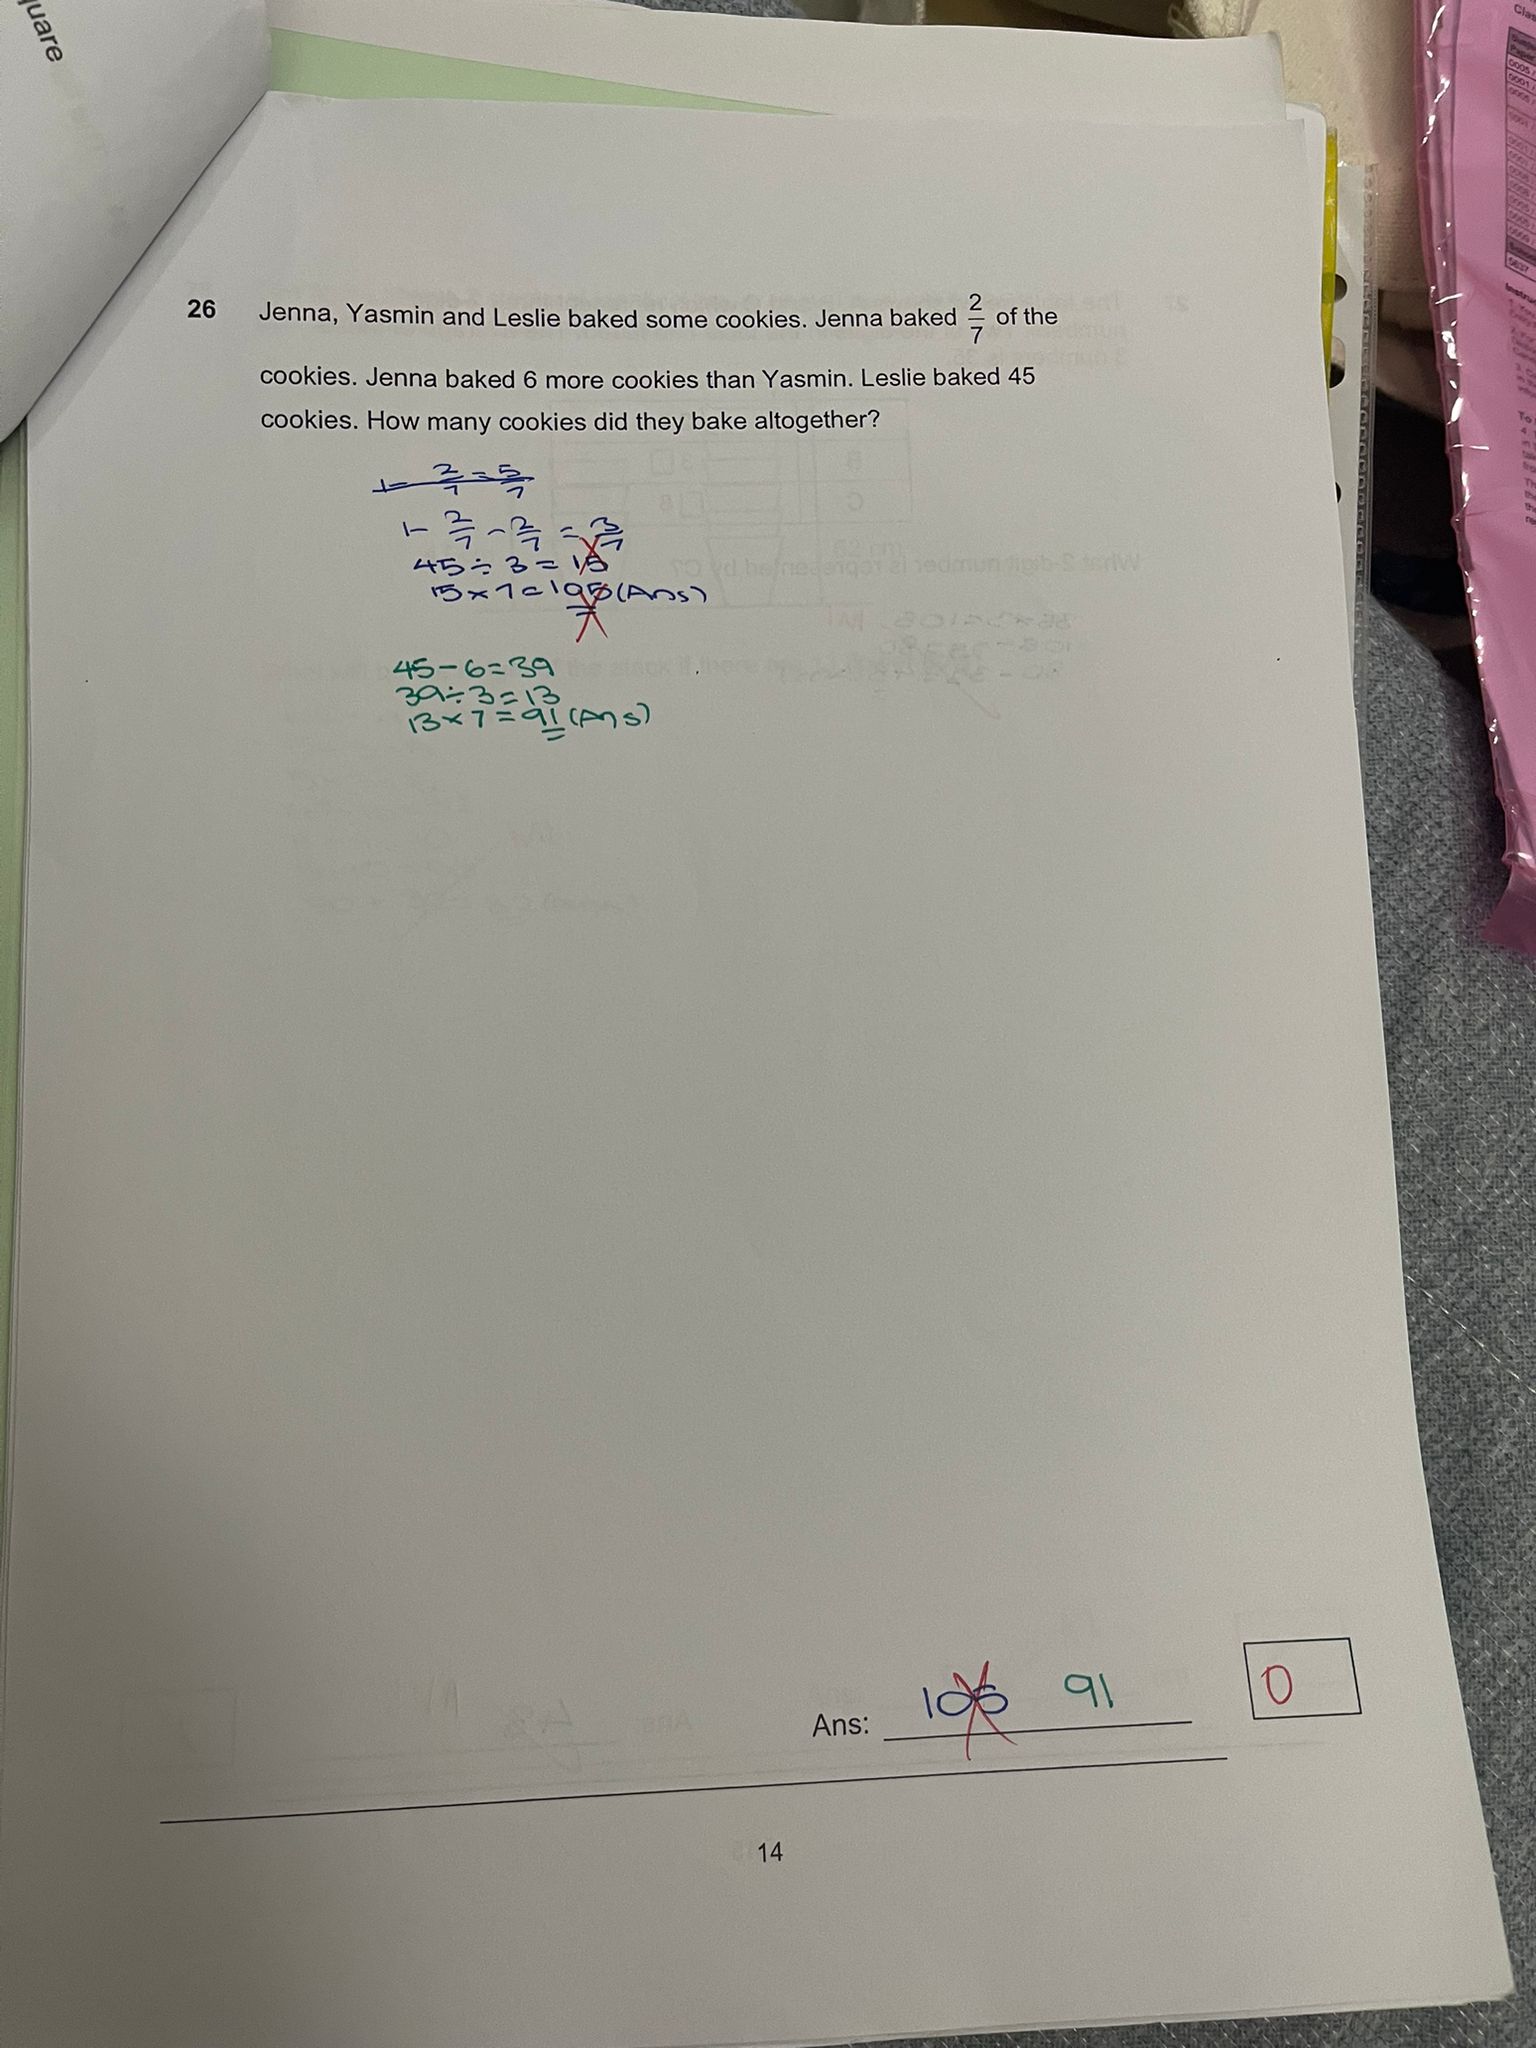 quare
26 Jenna, Yasmin and Leslie baked some cookies. Jenna baked 2/7 of the
cookies. Jenna baked 6 more cookies than Yasmin. Leslie baked 45
cookies. How many cookies did they bake altogether?
1 - 2/7 = 5/7
1 - 2/7 - 2/7 = 3/7
45 ÷ 3 = 15
15 × 7 = 105 (Ans)
45 - 6 = 39
39 ÷ 3 = 13
13 × 7 = 91 (Ans)
Ans: 105 91
0
14